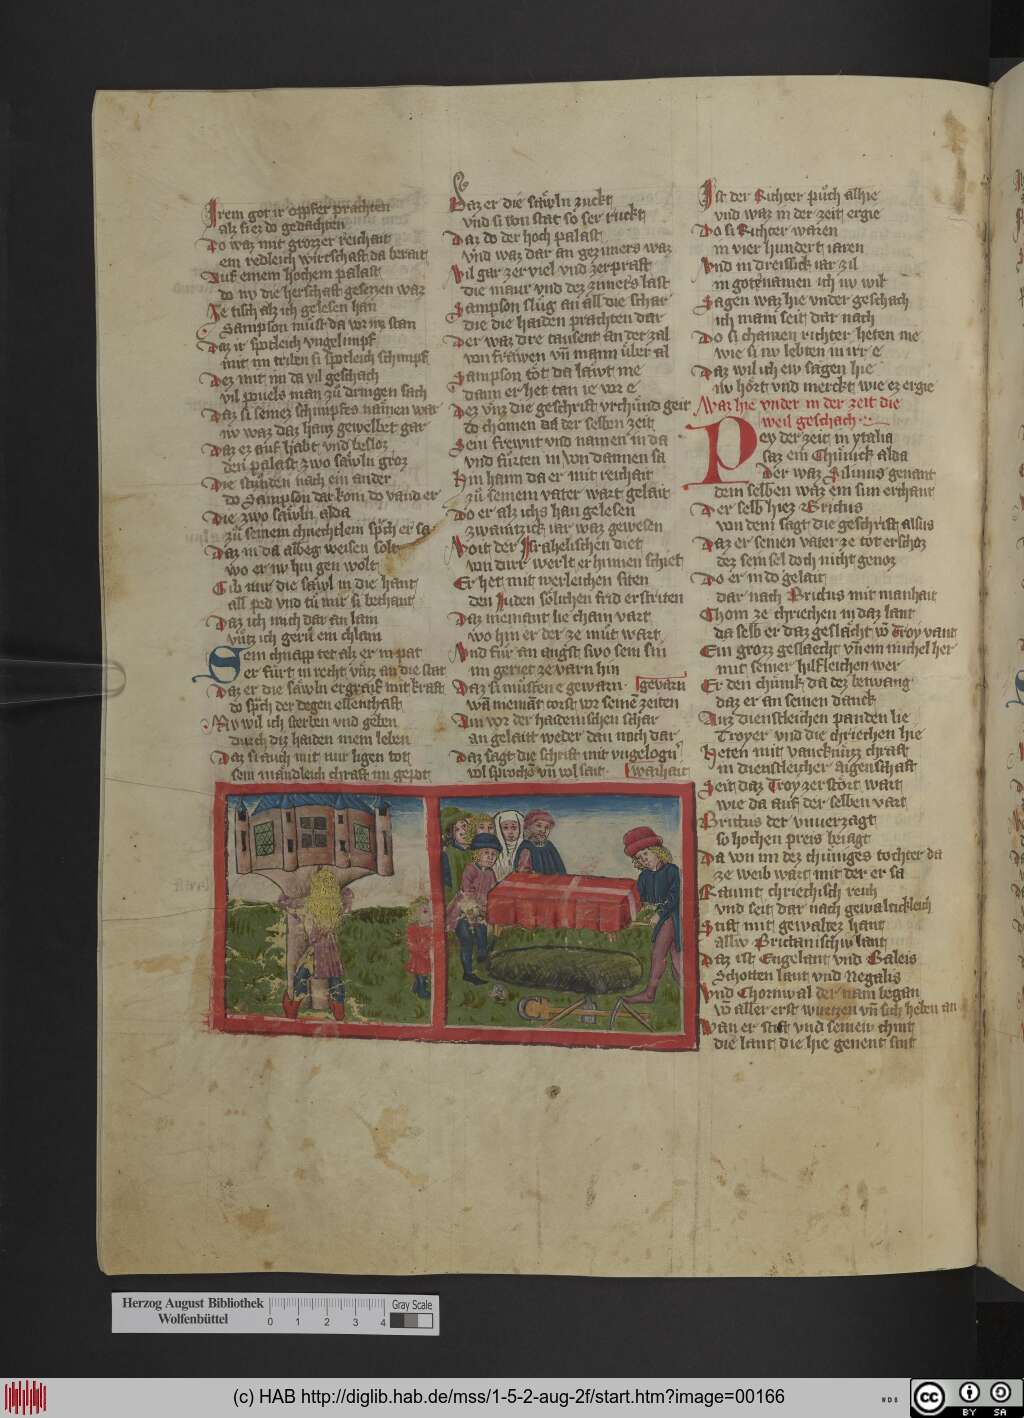 Irem got ir oppfer prachten
alz si ez do gedachten
Do waz mit grozzer reichait
ein redleich wirtschaft da berait
Auf einem hochem palast
do nv die herschaft gesezzen waz
Ze tisch alz ich gelesen han
Sampson müst da vor in stan
Daz ir spotleich vngelimpf
mit im triben si spotleich schimpf
Dez mit im da vil geschach
vil pouels man zü dringen sach
Daz si seinez schimpfes namen war
nv waz daz hauz gewelbet gar
Daz ez auf habt vnd besloz
den palast zwo sawln groz
Die stunden nach ein ander
do Sampson dar kom do vand er
Die zwo sawln alda
zü seinem chnechtlein sprch er sa
Daz in da albeg weisen solt
wo er nv hin gen wolt
Gib mir die sawl in die hant
all ped vnd tü mir si bechant
Daz ich mich dar an lain
vntz ich gerü ein chlain
Sein chnapp tet alz er in pat
er fürt in recht vntz an die stat
Daz er die sawln ergraif mit kraft
do sprch der degen ellenthaft
Nv wil ich sterben vnd geben
durch diz haiden mein leben
Daz si auch mit mir ligen tot
sein mandleich chraft im gepot
Daz er die sawln zuckt
vnd si von stat so ser ruckt
Daz do der hoch palast
vnd waz dar an gezimers waz
Vil gar zer viel vnd zerprast
die maur vnd dez zimers last
Sampson slug an all die schar
die die haiden prachten dar
Der waz dre tausent an der zal
von frawen vn mann über al
Sampson tot da lawt me
dann er het tan ie vor e
Dez vnz die geschrift vrchünd geit
do chomen da der selben zeit
Sein frewnt vnd namen in da
vnd fürten in von dannen sa
Hin haim da er mit reichait
zü seinem vater wart gelait
Do er alz ichs han gelesen
zwaintzick iar waz gewesen
Voit der Israhelischen diet
von dirr werlt er hinnen schiet
Er het mit werleichen siten
den Iuden sölichen frid erstriten
Daz niemant lie cham vart
wo hin er der ze müt wart
Vnd für an angst swo sein sin
im geriet ze varn hin
Daz si müsten e gewarn gevarn
wan nieman torst vor seinē zeiten
Im vor der haidenischen schar
an gelaitt weder dan noch dar
Daz sagt die schrift mit vngelogn
vol sprochē vn vol sait warhait
Ist der Richter püch alhie
vnd waz in der zeit ergie
Do si Richter waren
in vier hundert iaren
Vnd in dreissick iar zil
in gotz namen ich nv wil
Sagen waz hie vnder geschach
ich main seit dar nach
Do si chamen richter hezen me
wie si nv lebten in irr e
Daz wil ich ew sagen hie
nv hört vnd merckt wie ez ergie
Waz hie vnder in der zeit die
weil geschach
Pey der zeit in ytalia
saz ein Chünick alda
Der waz Siluius genant
dem selben waz ein sun erchant
Der selb hiez Britus
von dem sagt die geschrift alsus
Daz er seinen vater ze tot erschoz
dez sein sel doch nicht genoz
Do er in do gelait
dar nach Britus mit manhait
Chom ze chriechen in daz lant
da selb er daz geslächt vō Troy vant
Ein grozz geslaecht vn ein michel her
mit seiner hilfleichen wer
Er den chünk da dez betwang
daz er an seinen danck
Auz dienstleichen panden lie
Troyer vnd die chriechen hie
Heten mit vancknüzz chraft
in dienstleicher aigenschaft
Seit daz Troy zerstört wart
wie da auf der selben vart
Britus der vnuerzagt
so hochen preis beiagt
Da von im dez chüniges tochter da
ze weib wart mit der er sa
Raumt chriechisch reich
vnd seit dar nach gewaltickleich
Stift mit gewaltez hant
allw Britanischw lant
Daz ist Engelant vnd Galeis
Schotten lant vnd Negalis
Vnd Chornwal der nam began
vō aller erst wurtzen vn sich heben an
Wan er stift vnd seinew chint
die lant die hie genent sint
Herzog August Bibliothek
Wolfenbüttel
0 1 2 3 4
Gray Scale
(c) HAB http://diglib.hab.de/mss/1-5-2-aug-2f/start.htm?image=00166
WDB
cc BY SA